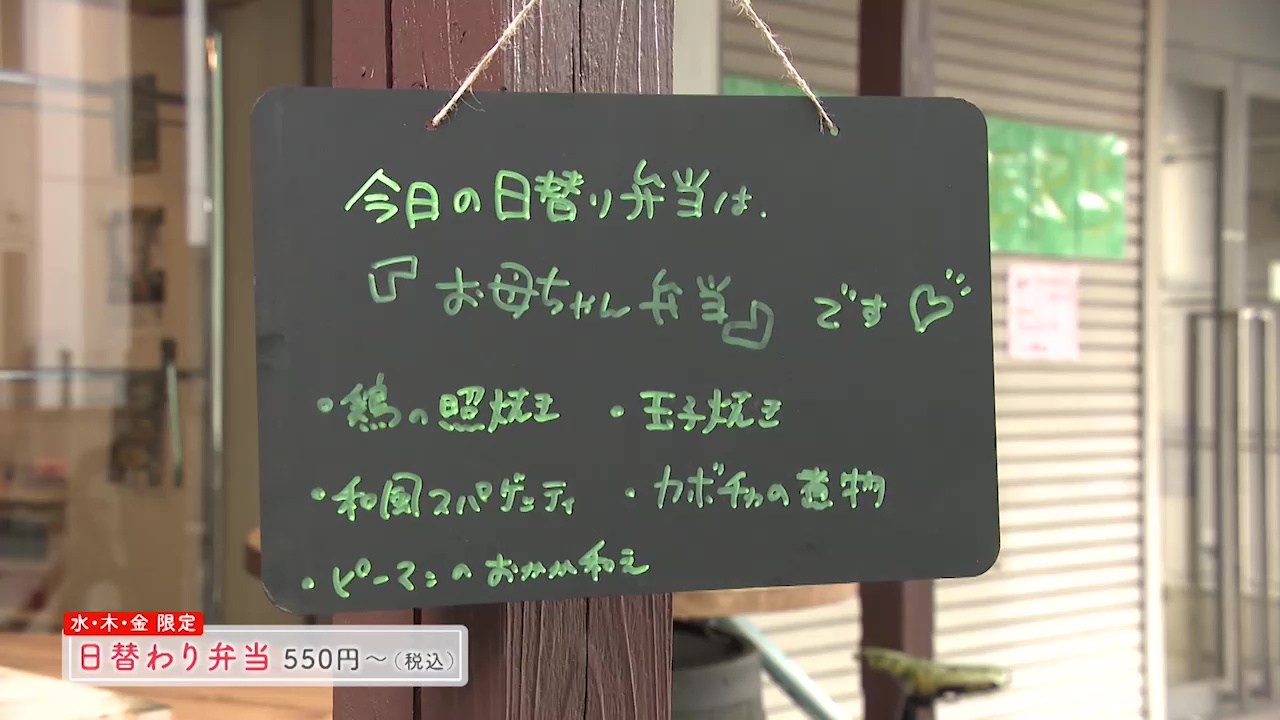 今日の日替り弁当は、
『お母ちゃん弁当』です♡
・鶏の照焼き ・玉子焼き
・和風スパゲッティ ・カボチャの煮物
・ピーマンのおかか和え
水・木・金 限定
日替わり弁当 550円～(税込)